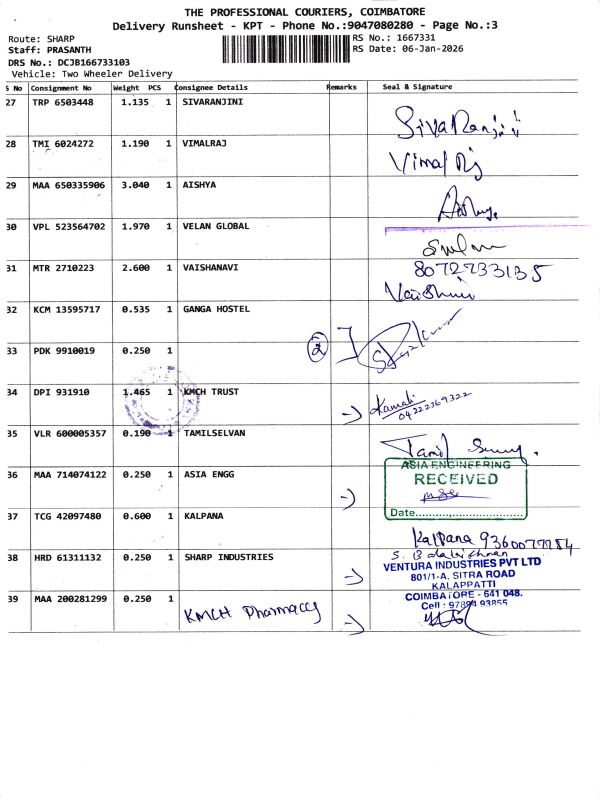 THE PROFESSIONAL COURIERS, COIMBATORE
Delivery Runsheet - KPT - Phone No.:9047080280 - Page No.:3
Route: SHARP
RS No.: 1667331
Staff: PRASANTH
RS Date: 06-Jan-2026
DRS No.: DCJB166733103
Vehicle: Two Wheeler Delivery
S No Consignment No Weight PCS Consignee Details Remarks Seal & Signature
27 TRP 6503448 1.135 1 SIVARANJINI
SivaRanjini
28 TMI 6024272 1.190 1 VIMALRAJ
Vimal Rj
29 MAA 650335906 3.040 1 AISHYA
30 VPL 523564702 1.970 1 VELAN GLOBAL
31 MTR 2710223 2.600 1 VAISHANAVI
8072733135
Vaishnavi
32 KCM 13595717 0.535 1 GANGA HOSTEL
2
33 PDK 9910019 0.250 1
34 DPI 931910 1.465 1 KMCH TRUST
Kamali
04222369322
35 VLR 600005357 0.190 1 TAMILSELVAN
Tamil
36 MAA 714074122 0.250 1 ASIA ENGG
ASIA ENGINEERING
RECEIVED
Date
37 TCG 42097480 0.600 1 KALPANA
Kalpana
38 HRD 61311132 0.250 1 SHARP INDUSTRIES
S. Balakrishnan
VENTURA INDUSTRIES PVT LTD
801/1-A, SITRA ROAD
KALAPPATTI
COIMBATORE - 641 048.
Cell : 97894 93855
39 MAA 200281299 0.250 1
KMCH Pharmacy